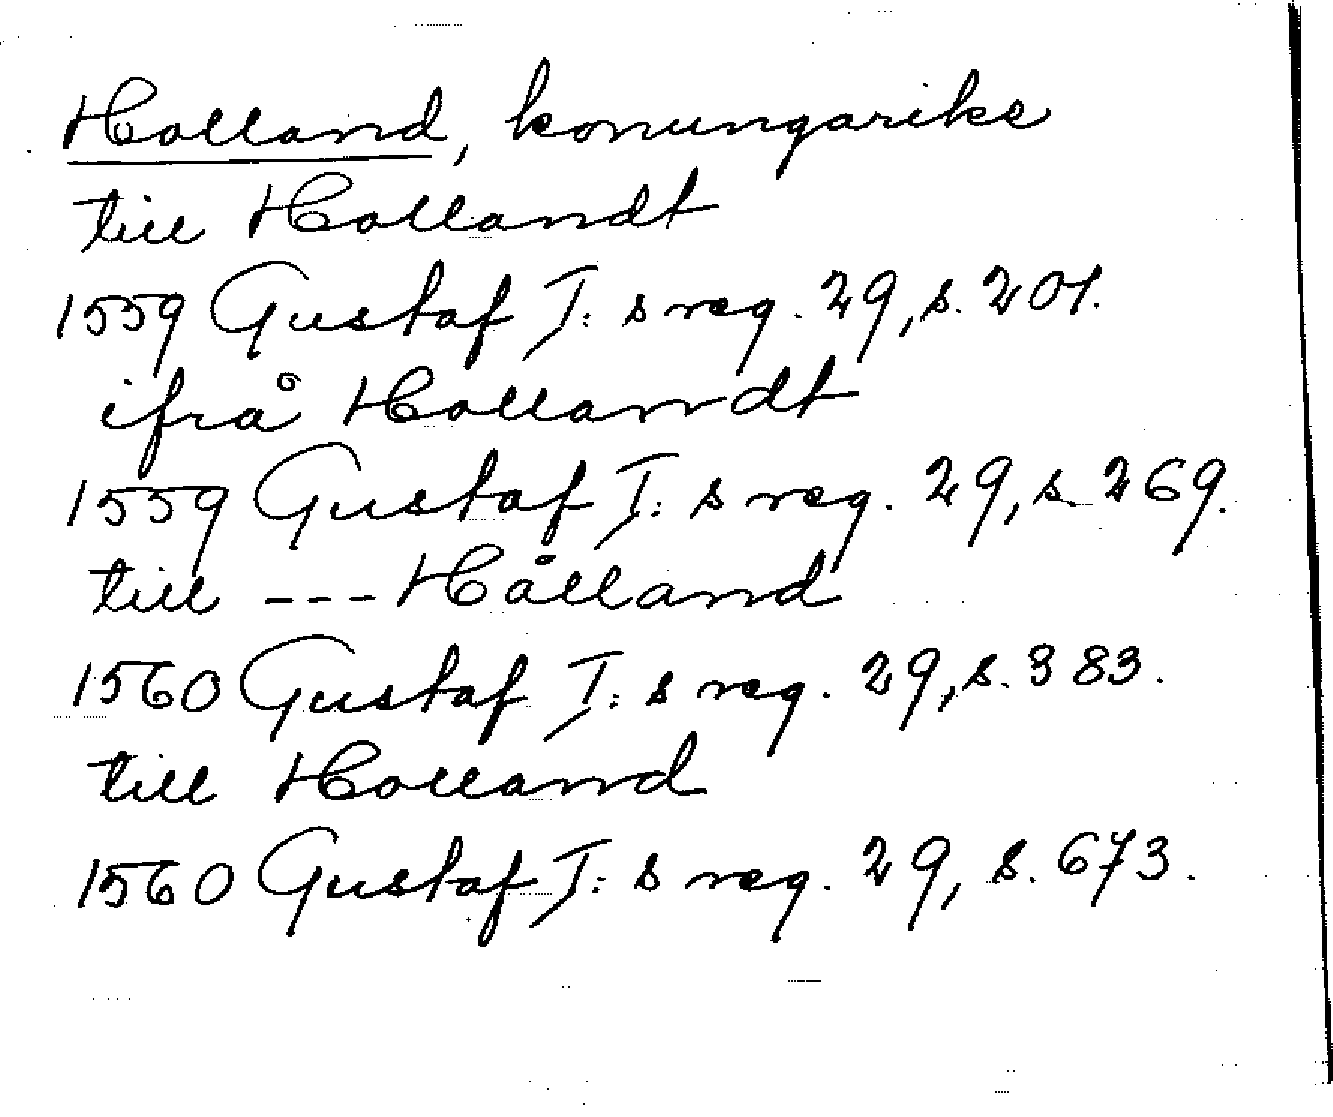 Holland, konungarike
till Hollandt
1559 Gustaf I:s reg. 29, s. 201.
ifrå Hollandt
1559 Gustaf I:s reg. 29, s. 269.
till --- Hålland
1560 Gustaf I:s reg. 29, s. 383.
till Holland
1560 Gustaf I:s reg. 29, s. 673.